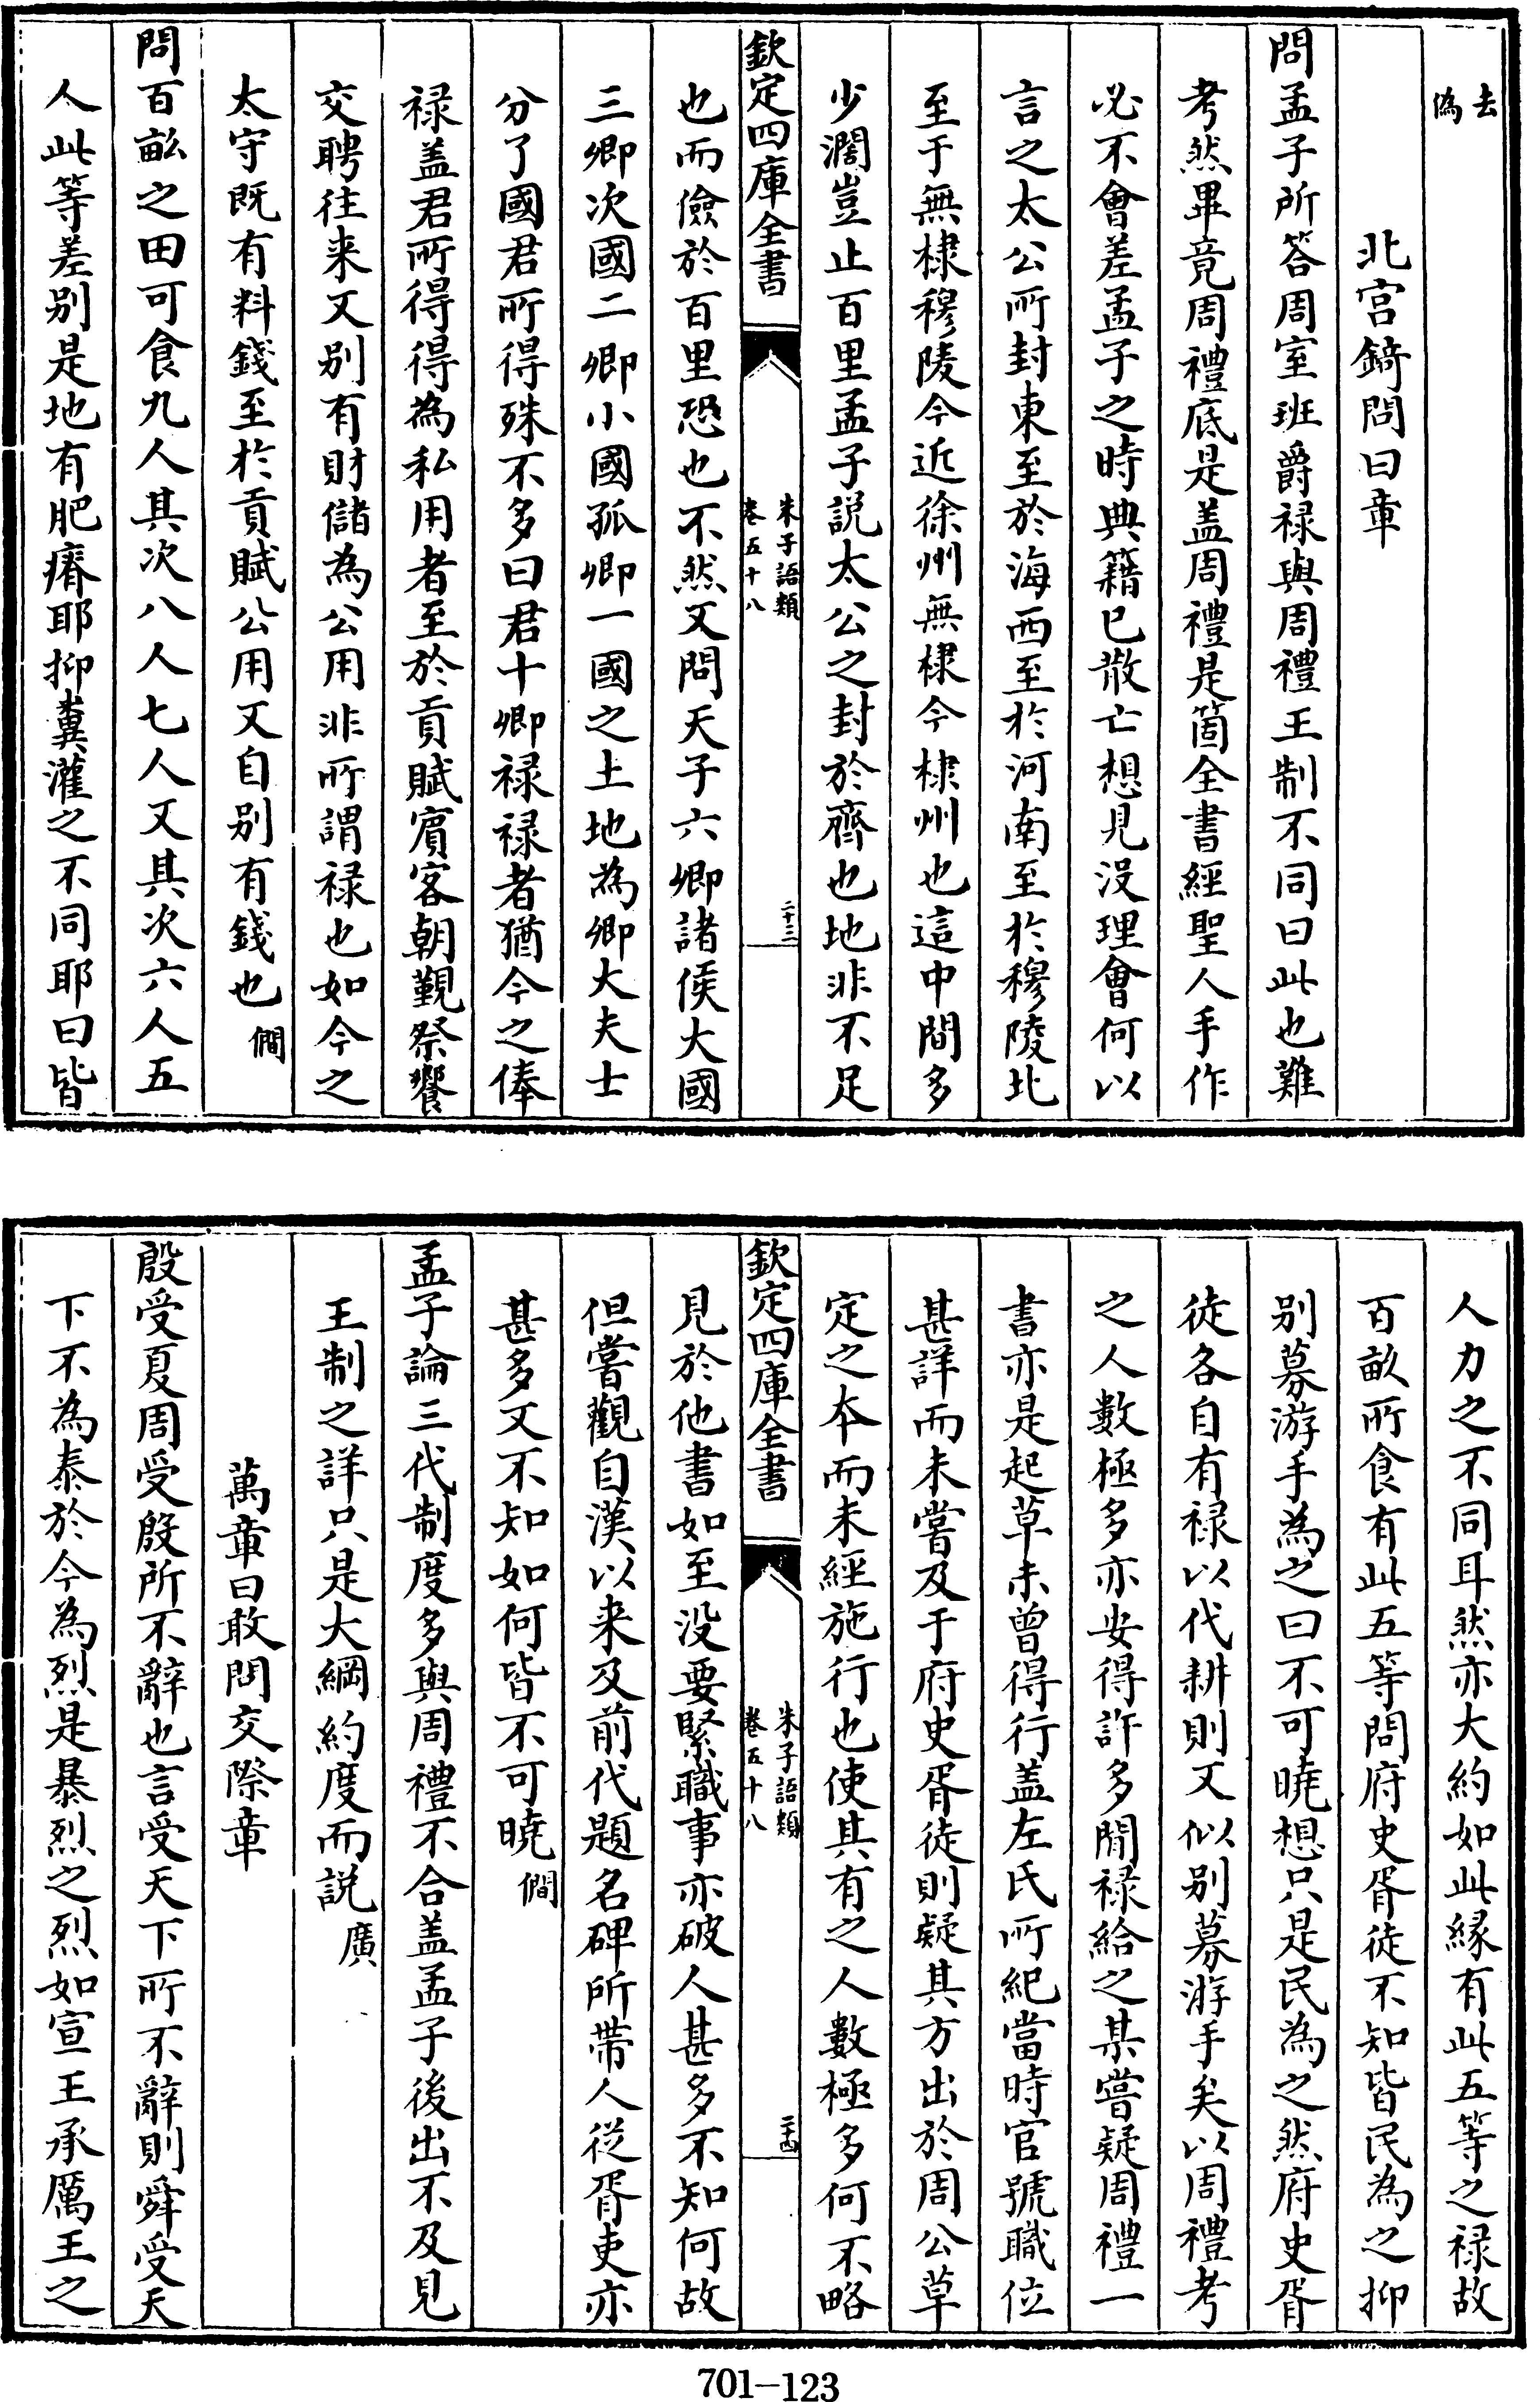 去偽
北宫錡問曰章
問孟子所答周室班爵禄與周禮王制不同曰此也難
考然畢竟周禮底是盖周禮是箇全書經聖人手作
必不會差孟子之時典籍已散亡想見没理會何以
言之太公所封東至於海西至於河南至於穆陵北
至于無棣穆陵今近徐州無棣今棣州也這中間多
少濶豈止百里孟子説太公之封於齊也地非不足
欽定四庫全書
朱子語類
卷五十八
二十三
也而儉於百里恐也不然又問天子六卿諸侯大國
三卿次國二卿小國孤卿一國之土地為卿大夫士
分了國君所得殊不多曰君十卿禄禄者猶今之俸
禄盖君所得得為私用者至於貢賦賓客朝覲祭饗
交聘往来又别有財儲為公用非所謂禄也如今之
太守既有料錢至於貢賦公用又自别有錢也 僩
問百畝之田可食九人其次八人七人又其次六人五
人此等差别是地有肥瘠耶抑糞灌之不同耶曰皆
人力之不同耳然亦大約如此縁有此五等之禄故
百畝所食有此五等問府史胥徒不知皆民為之抑
别募游手為之曰不可曉想只是民為之然府史胥
徒各自有禄以代耕則又似别募游手矣以周禮考
之人數極多亦安得許多閒禄給之某嘗疑周禮一
書亦是起草未曾得行盖左氏所紀當時官號職位
甚詳而未嘗及于府史胥徒則疑其方出於周公草
定之本而未經施行也使其有之人數極多何不略
欽定四庫全書
朱子語類
卷五十八
二十四
見於他書如至没要緊職事亦破人甚多不知何故
但嘗觀自漢以来及前代題名碑所帶人從胥吏亦
甚多又不知如何皆不可曉 僩
孟子論三代制度多與周禮不合盖孟子後出不及見
王制之詳只是大綱約度而説 廣
萬章曰敢問交際章
殷受夏周受殷所不辭也言受天下所不辭則舜受天
下不為泰於今為烈是暴烈之烈如宣王承厲王之
701-123